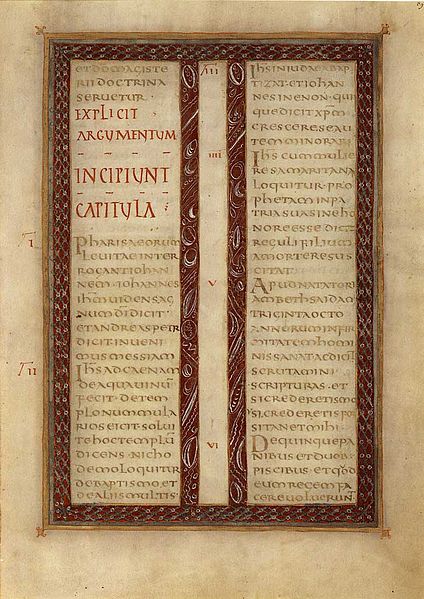 ET DOMAGISTE
RII DOCTRINA
SERUETUR ·
EXPLICIT
ARGUMENTUM
INCIPIUNT
CAPITULA
I
PHARISAEORUM
LEUITAE INTER
ROGANT IOHAN
NEM · IOHANNES
IHM UIDENS AG
NUM DI DICIT
ET ANDREAS PETR
DICIT INUENI
MUS MESSIAM
II
IHS AD CAENAM
DE AQUA UINU
FECIT · DE TEM
PLO NUMMULA
RIOS EICIT · SOLUI
TE HOC TEMPLU
DICENS · NICHO
DEMO LOQUITUR
DE BAPTISMO · ET
DE ALIIS MULTIS ·
III
IHS IN IUDAEA BAP
TIZAT · ET IOHAN
NES IN ENON · QUI
QUE DICIT XPM
CRESCERE SE AU
TEM MINORARI
IIII
IHS CUM MULIE
RE SAMARITANA
LOQUITUR · PRO
PHETAM IN PA
TRIA SUA SINE HO
NORE ESSE DICIT ·
REGULI FILIUM
A MORTE RESUS
CITAT
V
APUD NATATORI
AM BETHSAIDAM
TRIGINTA OCTO
ANNORUM INFIR
MITATEM HOMI
NIS SANAT AC DICIT
SCRUTAMINI
SCRIPTURAS · ET
SI CREDERETIS MO
SI CREDERETIS FOR
SITAN ET MIHI ·
VI
DE QUINQUE PA
NIBUS ET DUOB
PISCIBUS · ET QD
EUM REGEM FA
CERE UOLUERUNT